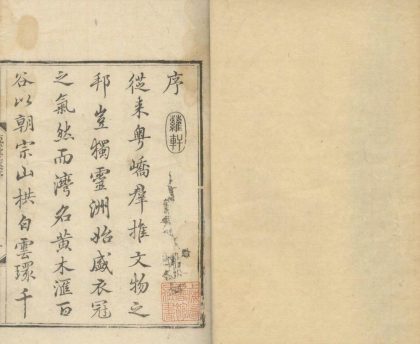 序
蘿軒
從来粤嶠羣推文物之
邦豈獨靈洲始盛衣冠
之氣然而灣名黄木滙百
谷以朝宗山拱白雲環千